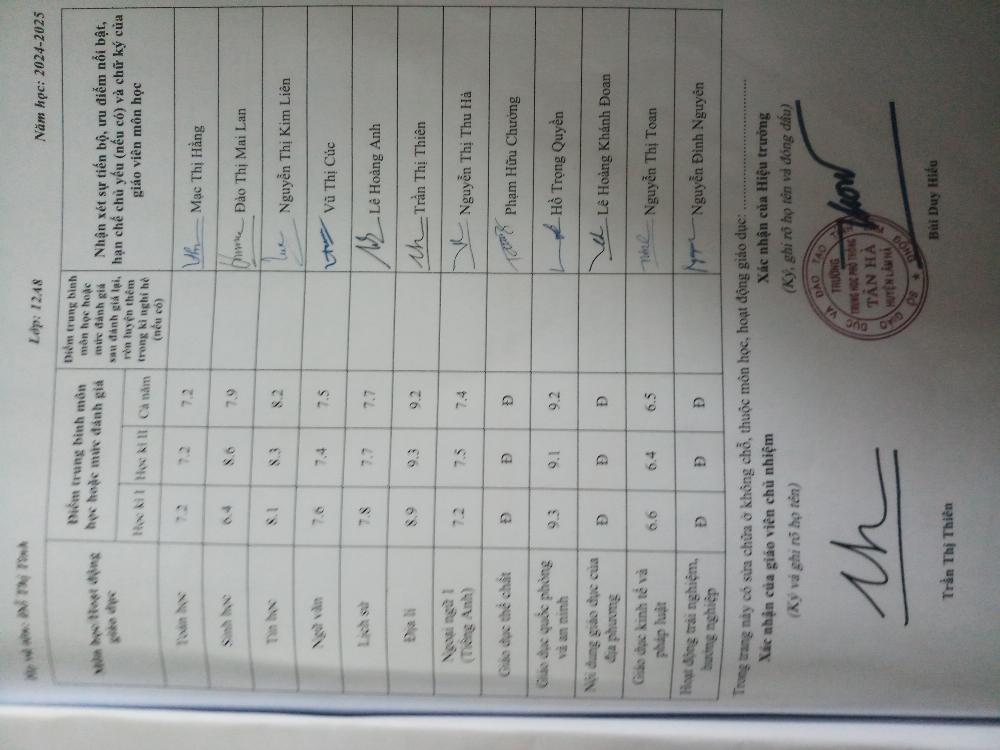 Họ và tên: Đỗ Thị Tình Lớp: 12A8 Năm học: 2024-2025
Môn học/Hoạt động giáo dục
Điểm trung bình môn học hoặc mức đánh giá
Học kì I Học kì II Cả năm
Điểm trung bình môn học hoặc mức đánh giá sau đánh giá lại, rèn luyện thêm trong kì nghỉ hè (nếu có)
Nhận xét sự tiến bộ, ưu điểm nổi bật, hạn chế chủ yếu (nếu có) và chữ ký của giáo viên môn học
Toán học 7.2 7.2 7.2 Mạc Thị Hằng
Sinh học 6.4 8.6 7.9 Đào Thị Mai Lan
Tin học 8.1 8.3 8.2 Nguyễn Thị Kim Liên
Ngữ văn 7.6 7.4 7.5 Vũ Thị Cúc
Lịch sử 7.8 7.7 7.7 Lê Hoàng Anh
Địa lí 8.9 9.3 9.2 Trần Thị Thiên
Ngoại ngữ 1 (Tiếng Anh) 7.2 7.5 7.4 Nguyễn Thị Thu Hà
Giáo dục thể chất Đ Đ Đ Phạm Hữu Chường
Giáo dục quốc phòng và an ninh 9.3 9.1 9.2 Hồ Trọng Quyền
Nội dung giáo dục của địa phương Đ Đ Đ Lê Hoàng Khánh Đoan
Giáo dục kinh tế và pháp luật 6.6 6.4 6.5 Nguyễn Thị Toan
Hoạt động trải nghiệm, hướng nghiệp Đ Đ Đ Nguyễn Đình Nguyên
Trong trang này có sửa chữa ở không chỗ, thuộc môn học, hoạt động giáo dục: ....................
Xác nhận của giáo viên chủ nhiệm
(Ký và ghi rõ họ tên)
Trần Thị Thiên
Xác nhận của Hiệu trưởng
(Ký, ghi rõ họ tên và đóng dấu)
TRƯỜNG
TRUNG HỌC PHỔ THÔNG
TÂN HÀ
HUYỆN LÂM HÀ
Bùi Duy Hiếu